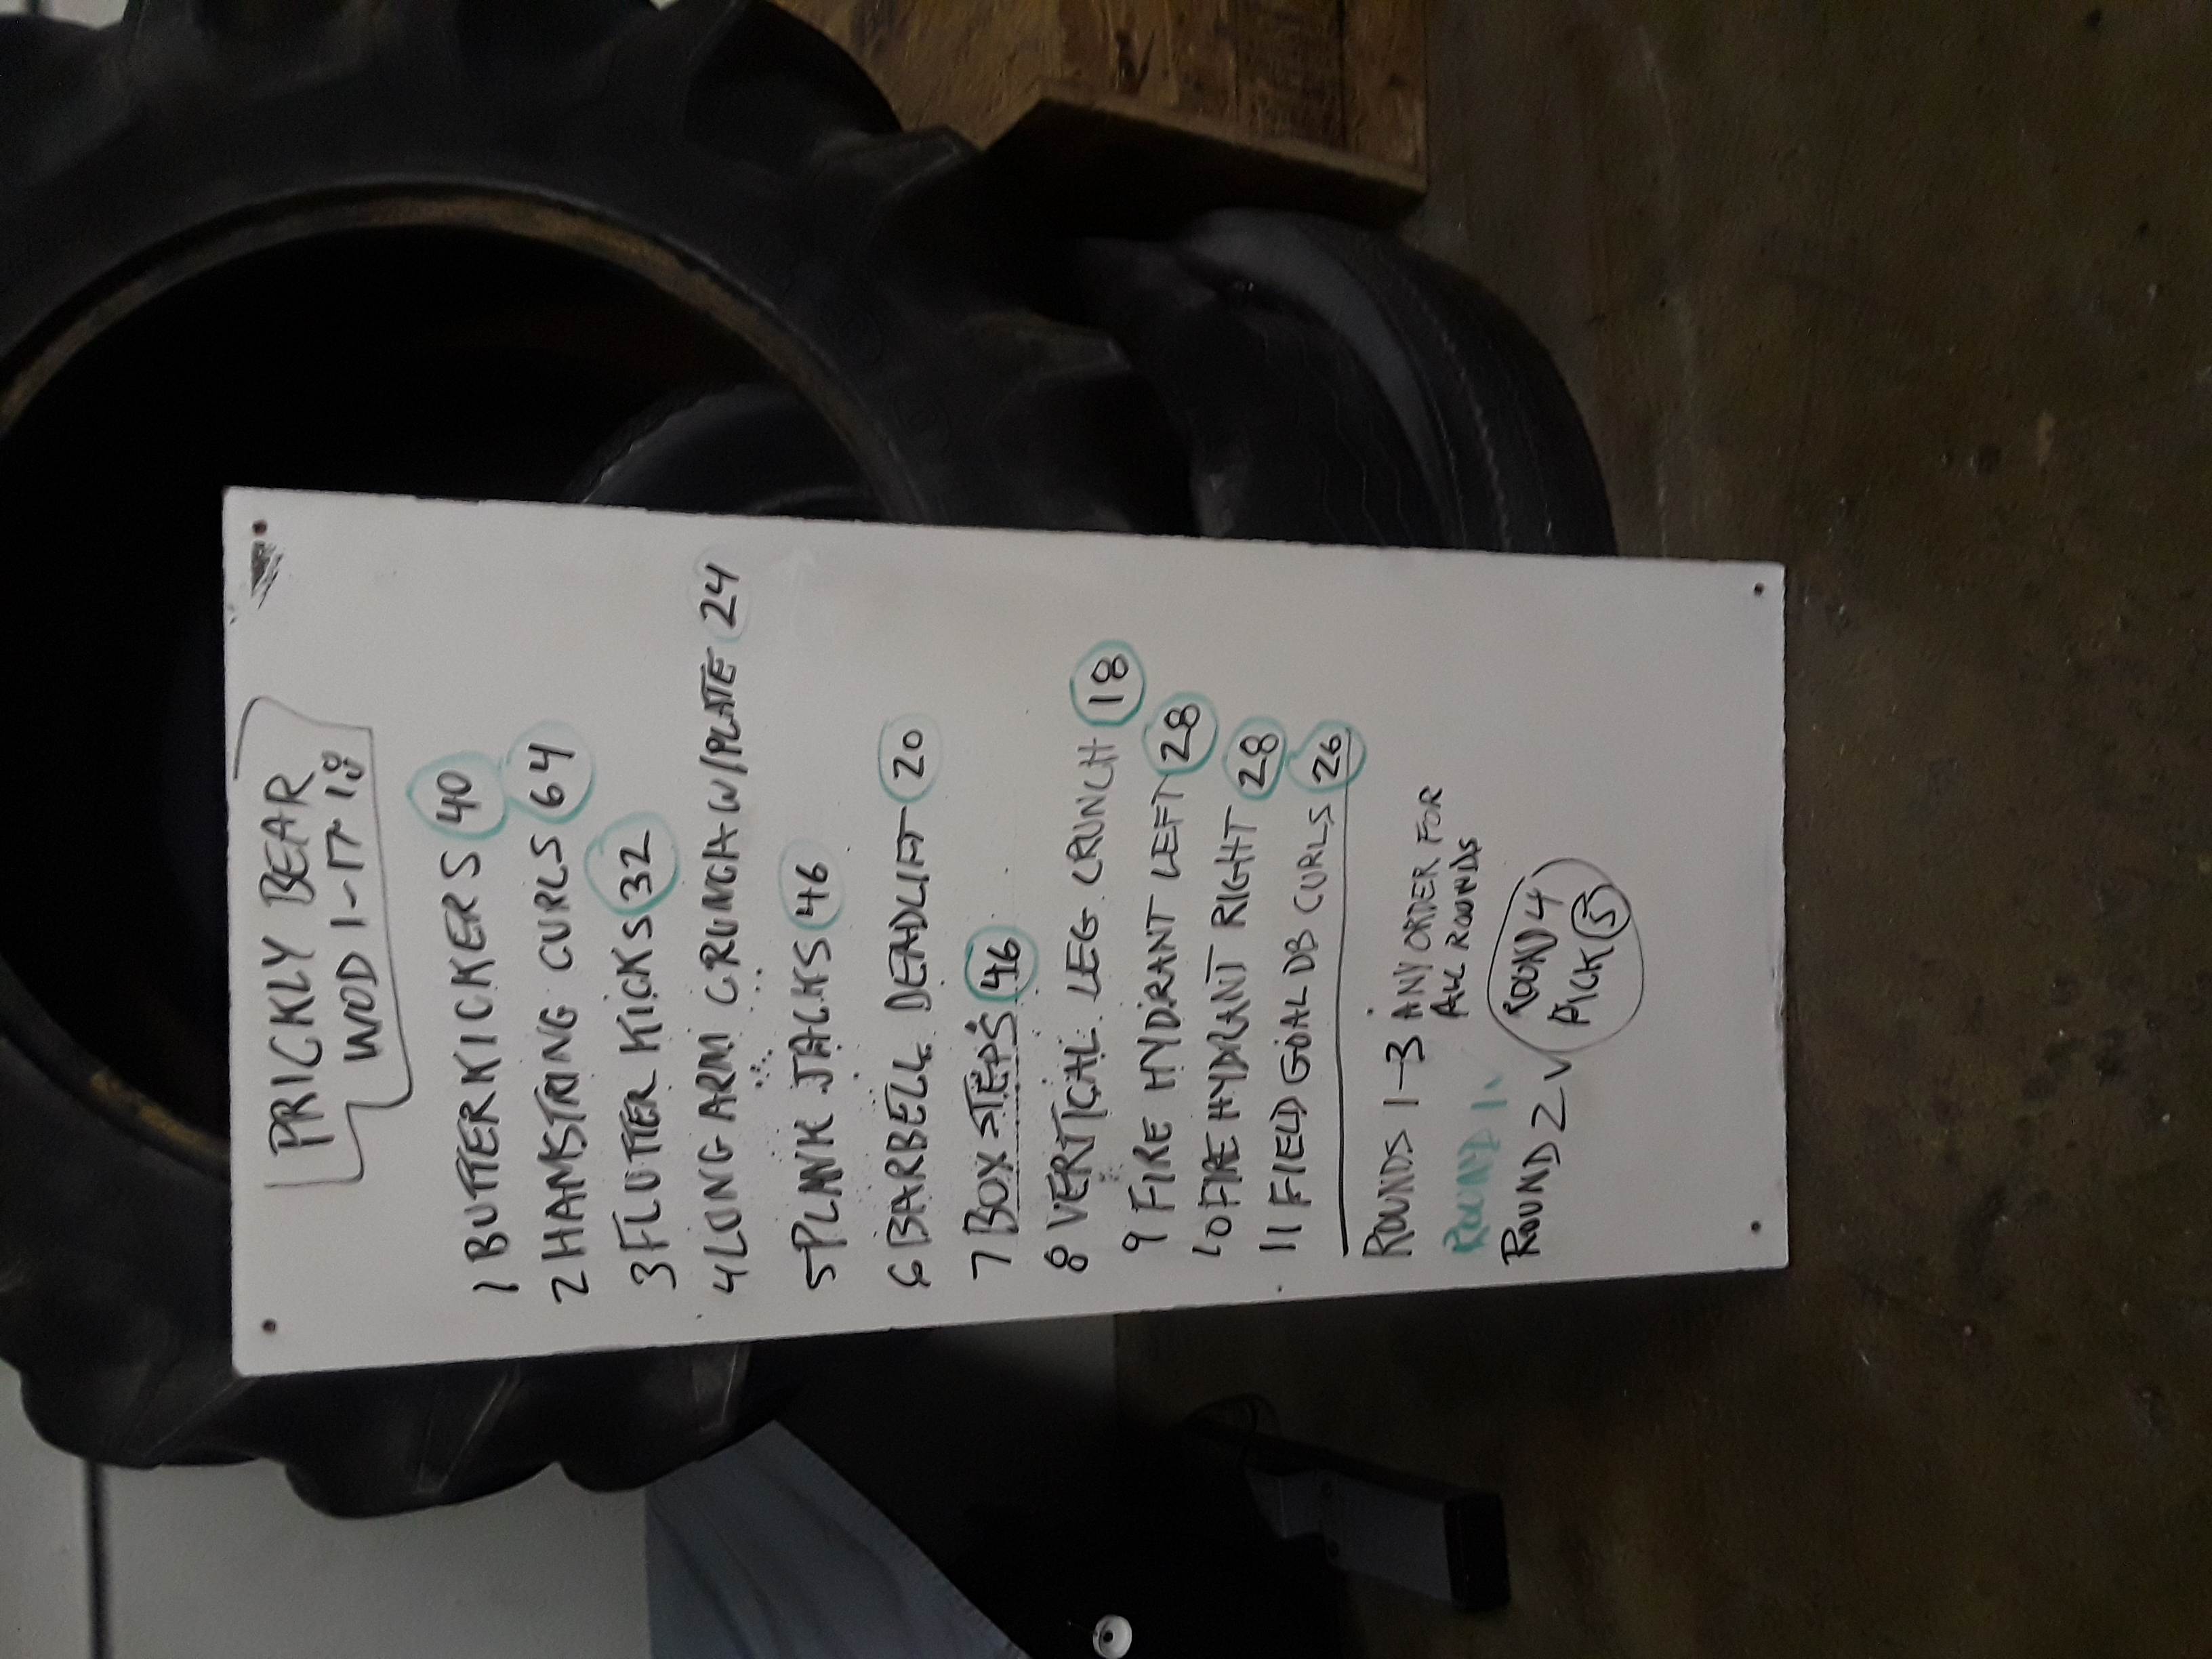 PRICKLY BEAR
WOD 1-17-18
1 BUTTERKICKERS 40
2 HAMSTRING CURLS 64
3 FLUTTER KICKS 32
4 LONG ARM CRUNCH W/PLATE 24
5 PLANK JACKS 46
6 BARBELL DEADLIFT 20
7 BOX STEPS 46
8 VERTICAL LEG CRUNCH 18
9 FIRE HYDRANT LEFT 28
10 FIRE HYDRANT RIGHT 28
11 FIELD GOAL DB CURLS 26
ROUNDS 1-3 ANY ORDER FOR
ALL ROUNDS
ROUND 1 ✓
ROUND 2 ✓
ROUND 4
PICK 5